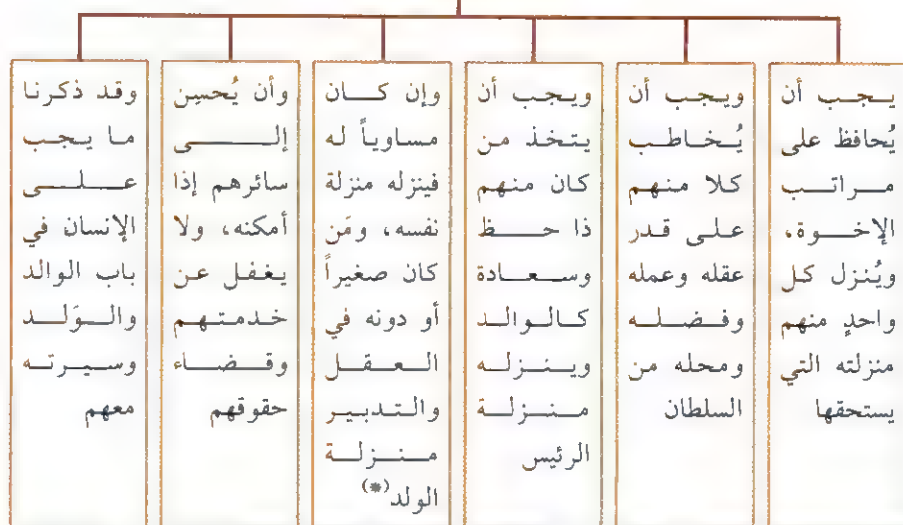 يجب أن
يُحافظ على
مراتب
الإخوة،
ويُنزل كل
واحدٍ منهم
منزلته التي
يستحقها
ويجب أن
يُخاطب
كلا منهم
على قدر
عقله وعمله
وفضله
ومحله من
السلطان
ويجب أن
يتخذ من
كان منهم
ذا حظ
وسعادة
كالوالد
وينزله
منزلة
الرئيس
وإن كان
مساوياً له
فينزله منزلة
نفسه، ومَن
كان صغيراً
أو دونه في
العقل
والتدبير
منزلة
الولد(*)
وأن يُحسِن
إلى
سائرهم إذا
أمكنه، ولا
يغفل عن
خدمتهم
وقضاء
حقوقهم
وقد ذكرنا
ما يجب
على
الإنسان في
باب الوالد
والوَلد
وسيرته
معهم